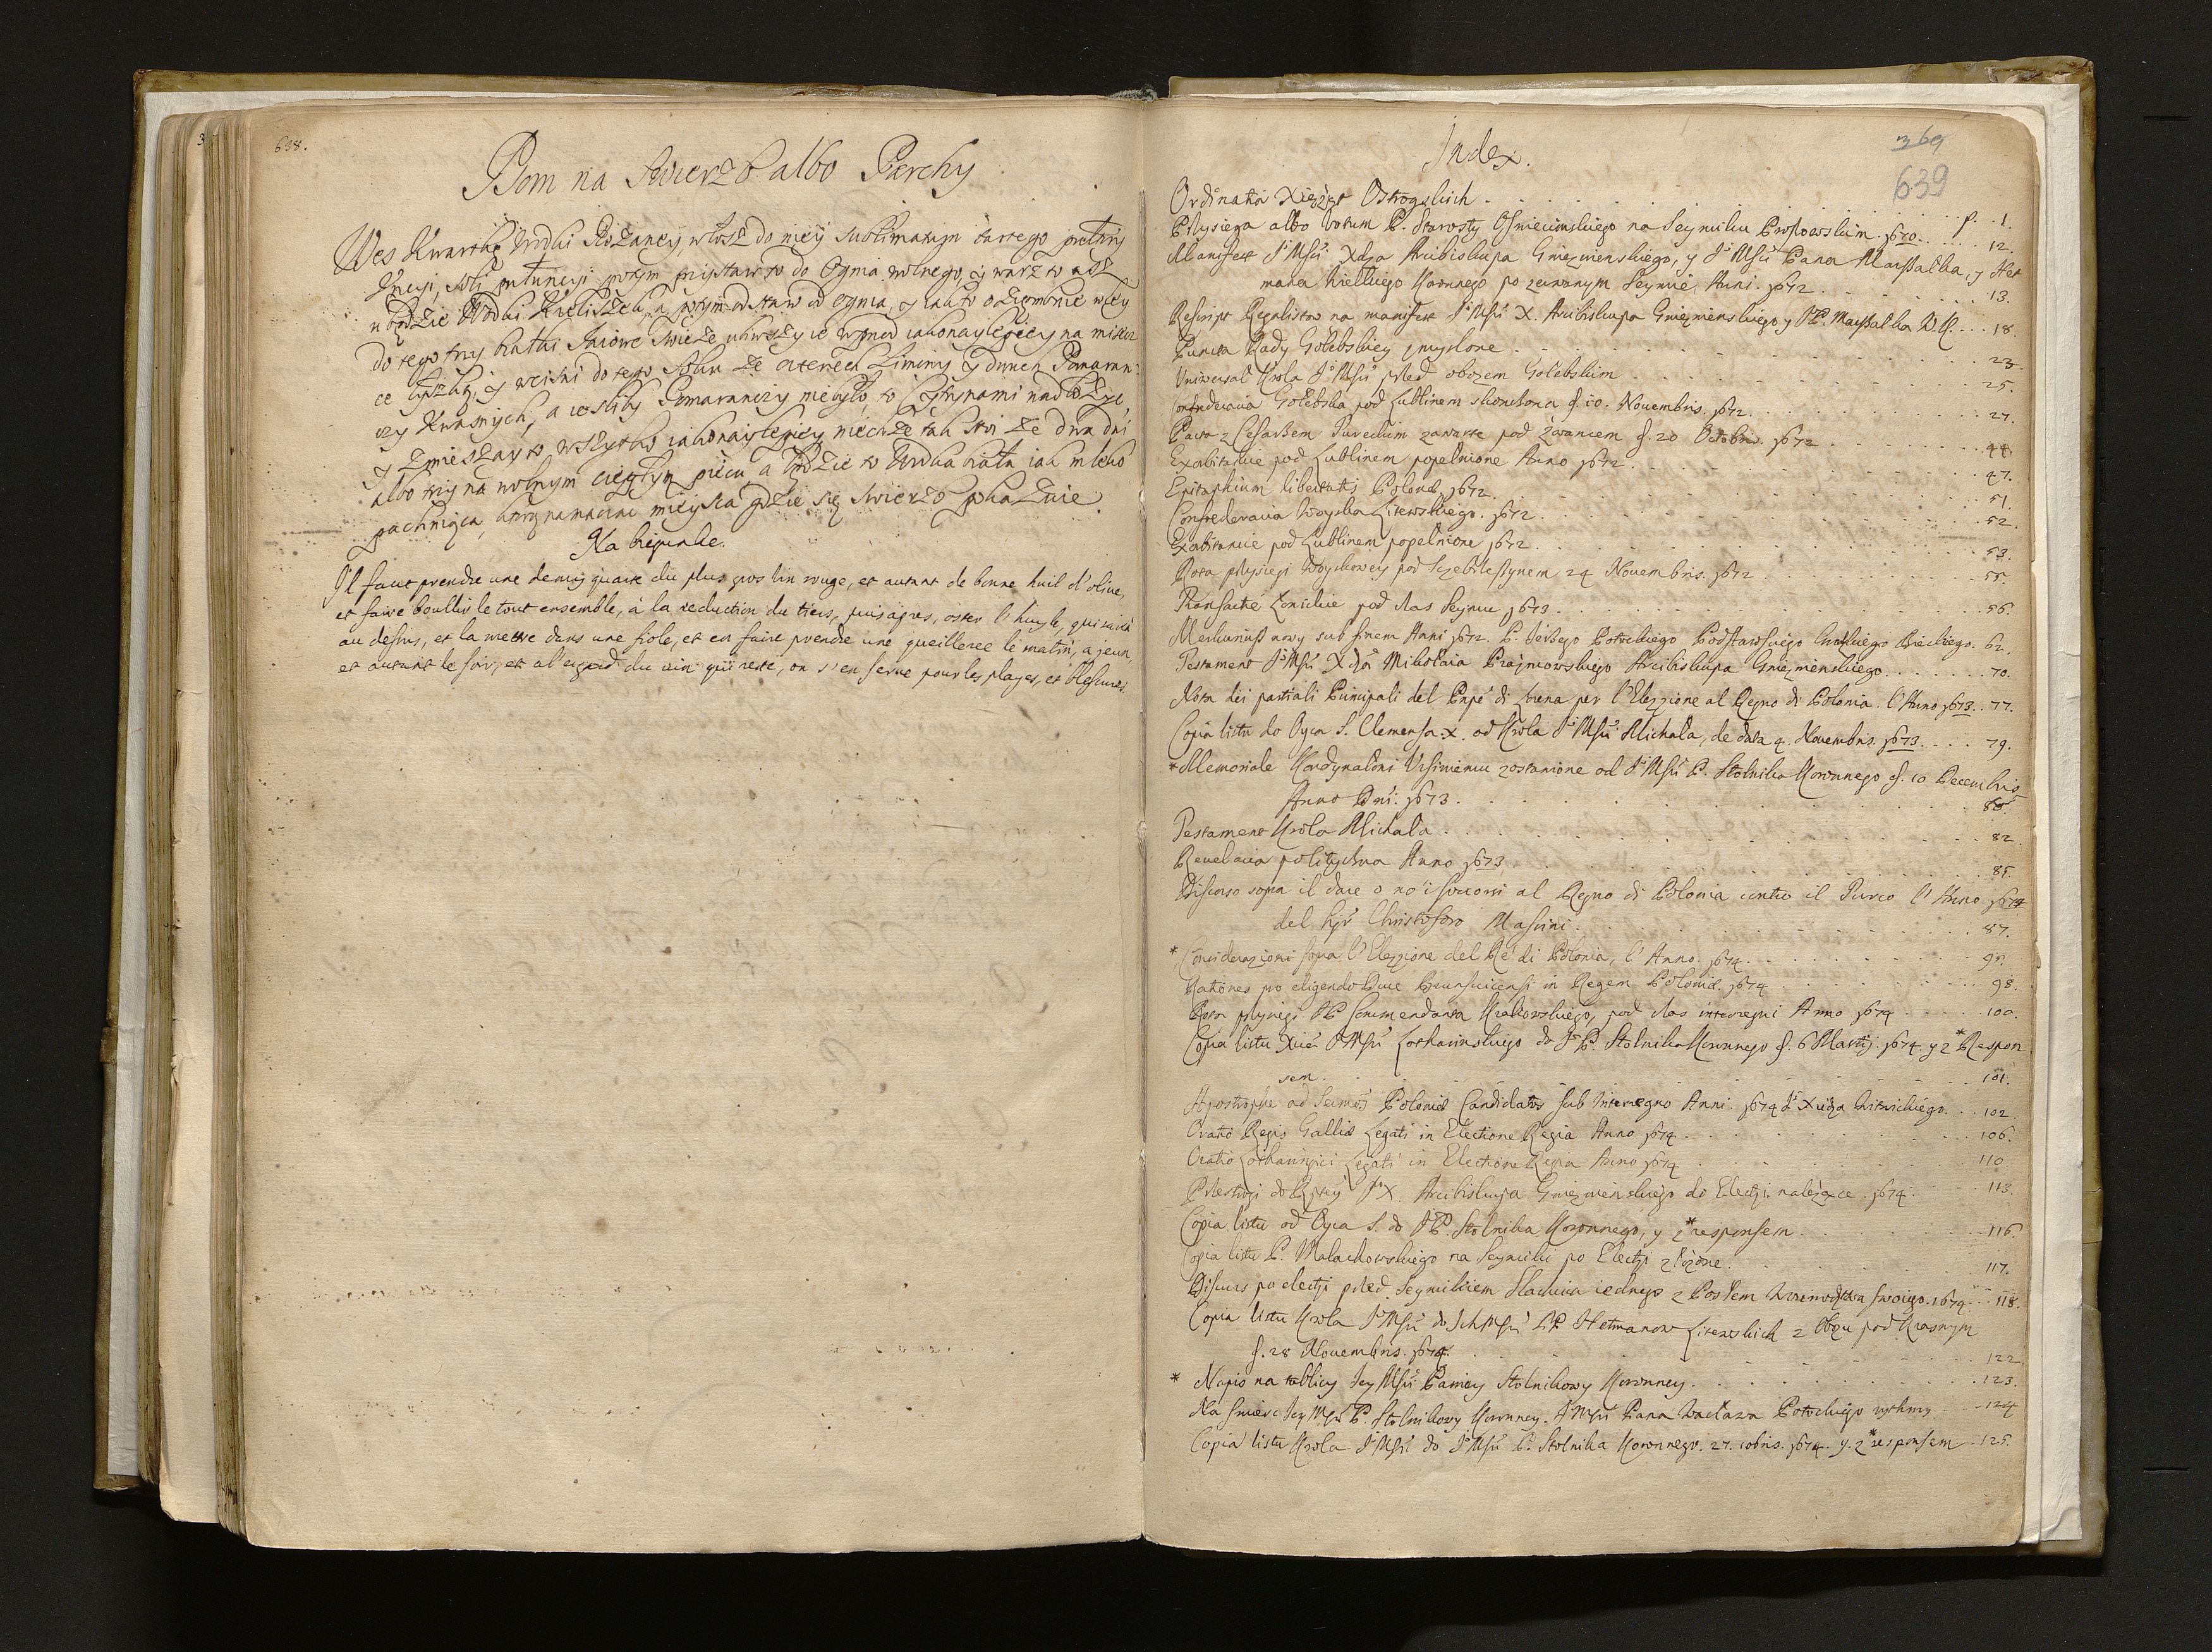 638.
Pom na Swierzb albo Parchy
Wes Kwartkę Wodki Różaney, włosz do nieÿ Sublimatum tartego
Uncyi, soli potym przystaw to do Ognia wolnego, y warz to asz
ubędzie Wodki Kieliszek, a potym odstaw od ognia, y iak to
do tego trzy białki świeże ubiwszy ie wprzod iakonaylepiey na
łyszką, y wciśni do tego Soku ze czterech Limony y dwuch Pomaran:
czy Kwasnych, a iesliby Pomaranczy niebyło, to Cytrynami
y zmieszay to wszytko iakonaylepiey niechże tak stoi ze dwa dni
albo trzy na wolnym ciepłym piecu a będzie to Wodka biała iak mleko
pachniąca, mieysca gdzie się swierzb pokazuie.
Na
Il faut prendre une demy quarte du plus gros vin rouge, et autant de bonne huil d'olive,
et faire boullir le tout ensemble, à la reduction du tiers, puis apres, oster l'huyle, qui
au desus, et la mettre dans une fiole, et en faire prendre une queilleree le matin, a jeun,
et autant le soir, et al'egard du vin qui reste, on s'en serve pour les playes, et blesures.
Index.
369
639
Ordinatia Xiążąt Ostrogskich . . . p. 1.
Przysięga albo Votum P. Starosty Oswiecimskiego na Seymiku Proszowskim. 1670. . . . 12.
Manifest Je Msci Xdza Arcibiskupa Gnieznienskiego, y Je Msci Pana Marszałka, y Het
mana Wielkiego Koronnego po zerwanym Seymie Anni. 1672. . . . 13.
Rescript Regalistow na manifest Je Msci X. Arcibiskupa Gnieznienskiego y JP. Marszałka W.K. . . . 18.
Puncta Rady Gołębskiey zmyslone . . . 23.
Uniwersał Krola Je Msci przed obozem Gołebskim . . . 25.
Confederacia Gołebska pod Lublinem skonczona d. 10. Novembris. 1672. . . . 27.
Pacta z Cesarzem Tureckim zawarte pod Zwancem d. 20 Octobris. 1672 . . . 44.
Exorbitancie pod Lublinem popełnione Anno 1672. . . . 47.
Epitaphium libertatis Polonæ. 1672. . . . 51.
Confederacia Woyska Litewskiego. 1672 . . . 52.
Exorbitancie pod Lublinem popełnione 1672. . . . 53.
Rota przysięgi Woyskowey pod Szczebrzeszynem 24 Novembris. 1672 . . . 55.
Łowickie pod czas Seymu 1673. . . . 56.
Merkuriusz nowy sub finem Anni 1672. P. Jerzego Potockiego Podstarosciego Bieckiego. 62.
Testament Je Msci Xdza Mikołaia Prażmowskiego Arcibiskupa Gnieznienskiego . . . 70.
Nota dei partiali Principali del Pnpe di Lorena per l'Elezzione al Regno di Polonia. l'Anno 1673. . 77.
Copia listu do Oyca S. Clemensa. X. od Krola Je Msci Michała, de data 4. Novembris. 1673. . . . 79.
* Memoriale Kardynałowi Ursiniemu zostawione od Je Msci P. Stolnika Koronnego d. 10 Decembris
Anno Dni. 1673. . . . 80.
Testament Krola Michała . . . 82.
Revelacia polityczna Anno 1673 . . . 85.
Discorso sopra il dare o no i soccorsi al Regno di Polonia contro il Turco l'Anno 1674
del Sigr Christoforo Masini. . . . 87.
* Considerazioni sopra l'Elezzione del Re di Polonia, l'Anno. 1674. . . . 95.
Rationes pro eligendo Duce Brunsuicensi in Regem Poloniæ. 1674 . . . 98.
Rota przysięgi JP Commendanta Krakowskiego, pod czas interregni Anno 1674 . . . 100.
Copia listu Xcia Je Msci Lotharinskiego do Je P. Stolnika Koronnego d. 6 Martij. 1674 y z * Respon
sem. . . . 101.
Apostrophe ad Poloniæ Candidatos sub Interregno Anni. 1674 Je Xiędza . . . 102.
Oratio Regis Galliæ Legati in Electione Regia Anno 1674. . . . 106.
Oratio Lotharingici Legati in Electione Regia Anno 1674 . . . 110
Przestrogi do Rzptey Je X. Arcibiskupa Gnieznienskiego do Electÿi należące. 1674. . . . 113.
Copia listu od Oyca S. do JP. Stolnika Koronnego, y z * responsem . . . 116.
Copia listu P. Małachowskiego na Seymiki po Electÿi złożone. . . . 117.
Discurs po electÿi przed Seymikiem Slachcica iednego z Posłem Woiewodztwa swoiego. 1674 . . 118.
Copia listu Krola Je Msci do Ich Msci PP. Hetmanow Litewskich z Obozu pod Krasnym
d. 28 Novembris. 1674. . . . 122.
* Napis na tablicy Jey Msci Paniey Stolnikowy Koronney. . . . 123.
Na smierc Jey Msci P. Stolnikowy Koronney. Je Msci Pana Wacława Potockiego rythmy . . . 124
Copia listu Krola Je Msci do Je Msci P. Stolnika Koronnego. 27. 10bris. 1674. y z * responsem . 125.